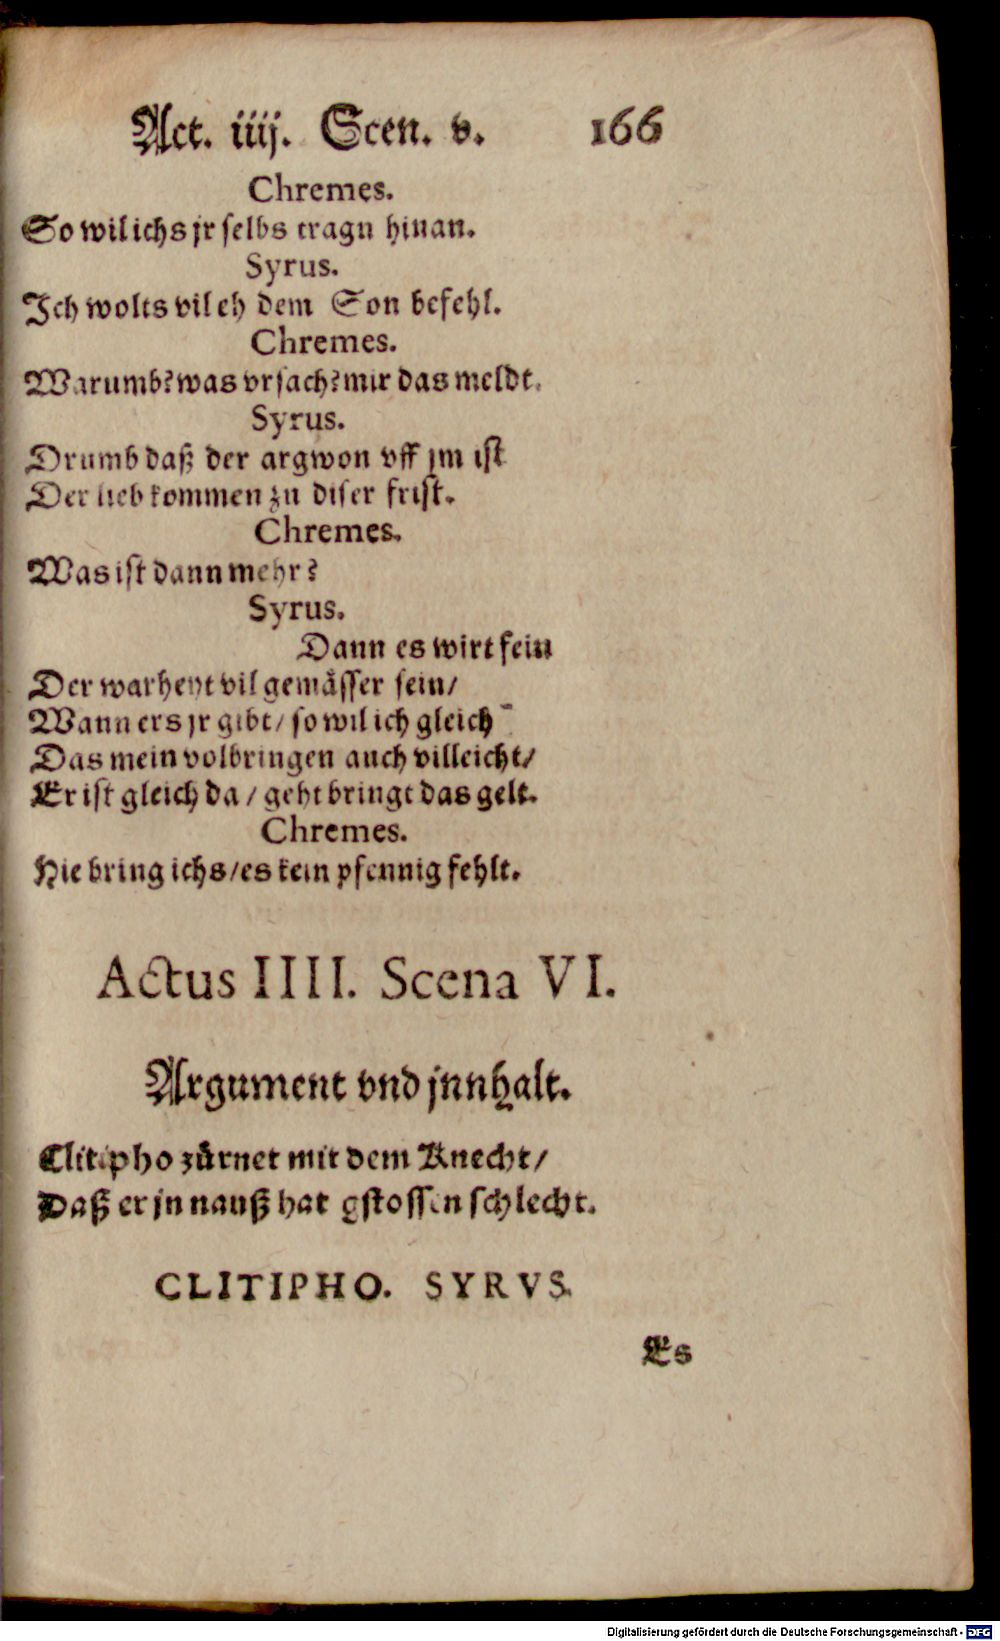 Act. iiij. Scen. v. 166
Chremes.
So wil ichs jr selbs tragn hinan.
Syrus.
Ich wolts vil eh dem Son befehl.
Chremes.
Warumb? was vrsach? mir das meldt.
Syrus.
Drumb daß der argwon vff jm ist
Der lieb kommen zu diser frist.
Chremes.
Was ist dann mehr?
Syrus.
Dann es wirt fein
Der warheyt vil gemässer sein/
Wann ers jr gibt/ so wil ich gleich
Das mein volbringen auch villeicht/
Er ist gleich da/ geht bringt das gelt.
Chremes.
Hie bring ichs/ es kein pfennig fehlt.
Actus IIII. Scena VI.
Argument vnd jnnhalt.
Clitipho zürnet mit dem Knecht/
Daß er jn nauß hat gstossen schlecht.
CLITIPHO. SYRVS.
Es
Digitalisierung gefördert durch die Deutsche Forschungsgemeinschaft - DFG